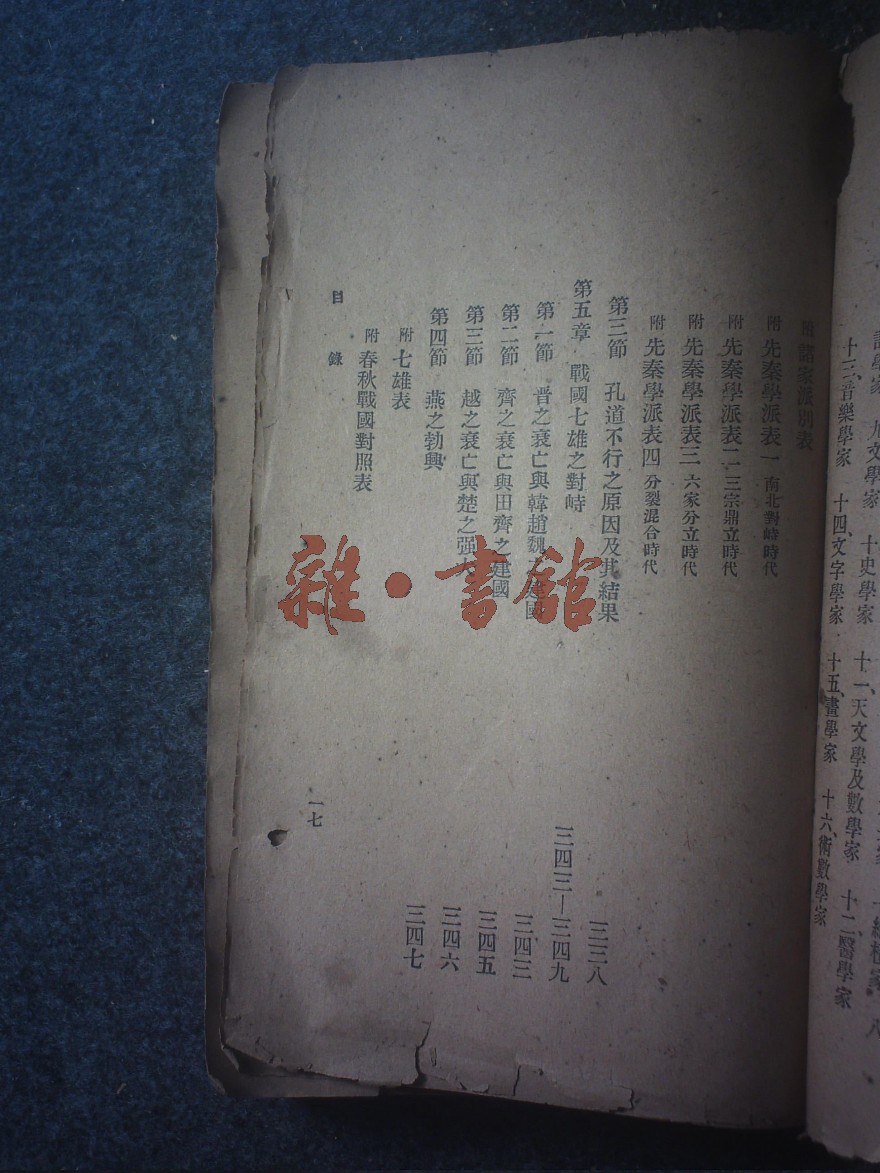 學家 九、文學家 十、史學家 十一、天文學及數學家 十二、醫學家
十三、音樂學家 十四、文字學家 十五、畫學家 十六、術數學家
附 諸家派別表
附 先秦學派表一 南北對峙時代
附 先秦學派表二 三宗鼎立時代
附 先秦學派表三 六家分立時代
附 先秦學派表四 分裂混合時代
第三節 孔道不行之原因及其結果 三三八
第五章 戰國七雄之對峙 三四三—三四九
第一節 晋之衰亡與韓趙魏之建國 三四三
第二節 齊之衰亡與田齊之建國 三四五
第三節 越之衰亡與楚之强大 三四六
第四節 燕之勃興 三四七
附 七雄表
附 春秋戰國對照表
目錄 一七
雜·書館